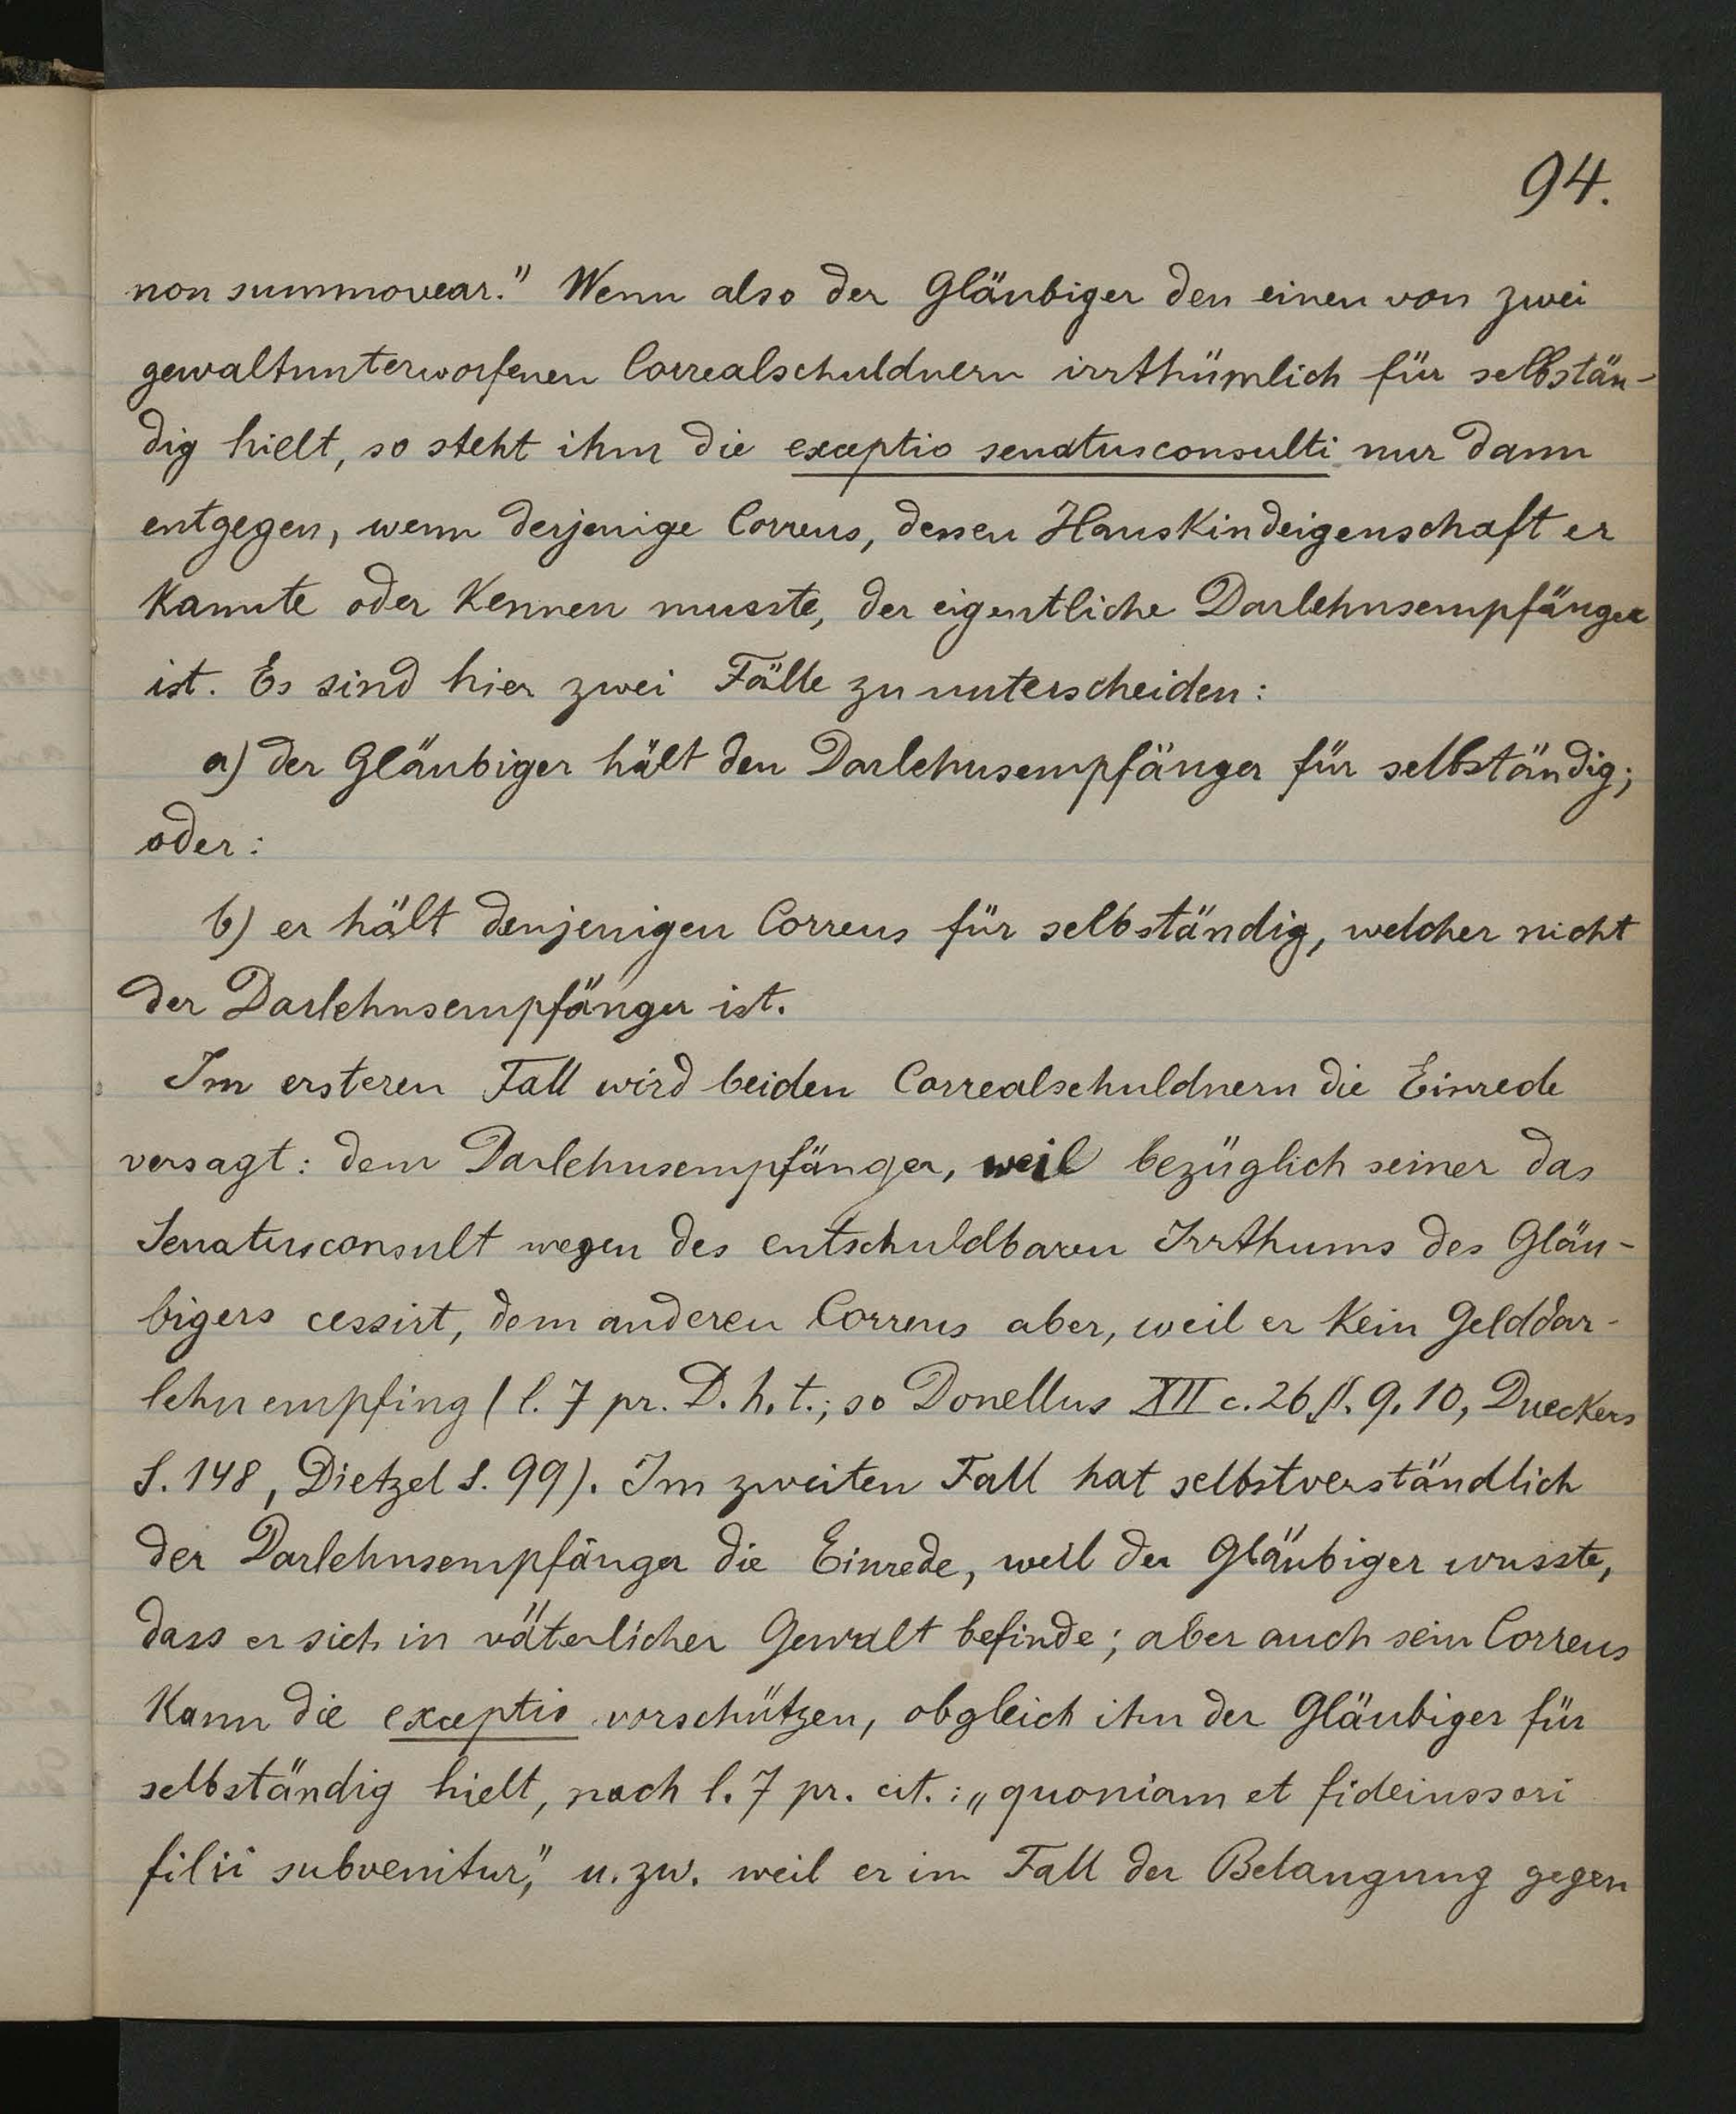 94.
non summovear." Wenn also der Gläubiger den einen von zwei
gewaltunterworfenen Correalschuldnern irrthümlich für selbstän-
dig hielt, so steht ihm die exceptio senatusconsulti nur dann
entgegen, wenn derjenige Correus, dessen Hauskindeigenschaft er
kannte oder kennen musste, der eigentliche Darlehnsempfänger
ist. Es sind hier zwei Fälle zu unterscheiden:
a) der Gläubiger hält den Darlehnsempfänger für selbständig;
oder:
b) er hält denjenigen Correus für selbständig, welcher nicht
der Darlehnsempfänger ist.
Im ersteren Fall wird beiden Correalschuldnern die Einrede
versagt: dem Darlehnsempfänger, weil bezüglich seiner das
Senatusconsult wegen des entschuldbaren Irrthums des Gläu-
bigers cessirt, dem anderen Correus aber, weil er kein Gelddar-
lehn empfing (l. 7 pr. D. h. t.; so Donellus XII c. 26 §. 9. 10, Dueckers
S. 148, Dietzel S. 99). Im zweiten Fall hat selbstverständlich
der Darlehnsempfänger die Einrede, weil der Gläubiger wusste,
dass er sich in väterlicher Gewalt befinde; aber auch sein Correus
kann die exceptio vorschützen, obgleich ihn der Gläubiger für
selbständig hielt, nach l. 7 pr. cit.: „quoniam et fideiussori
filii subvenitur," u. zw. weil er im Fall der Belangung gegen